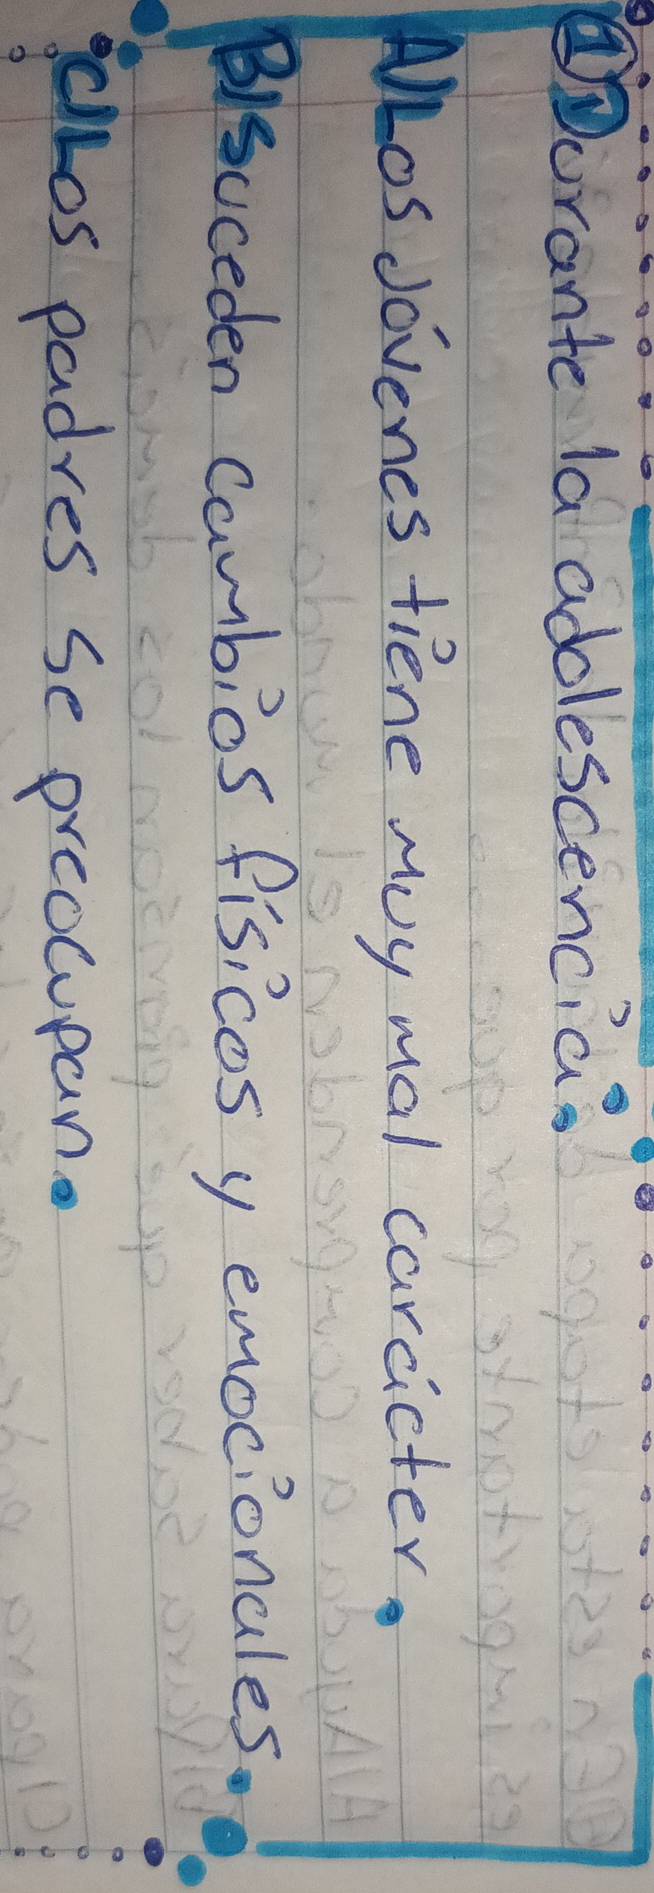 ① Durante la adolescencia:
A) Los Jóvenes tiene muy mal carácter.
B) Suceden cambios físicos y emocionales.
C) Los padres se preocupan.